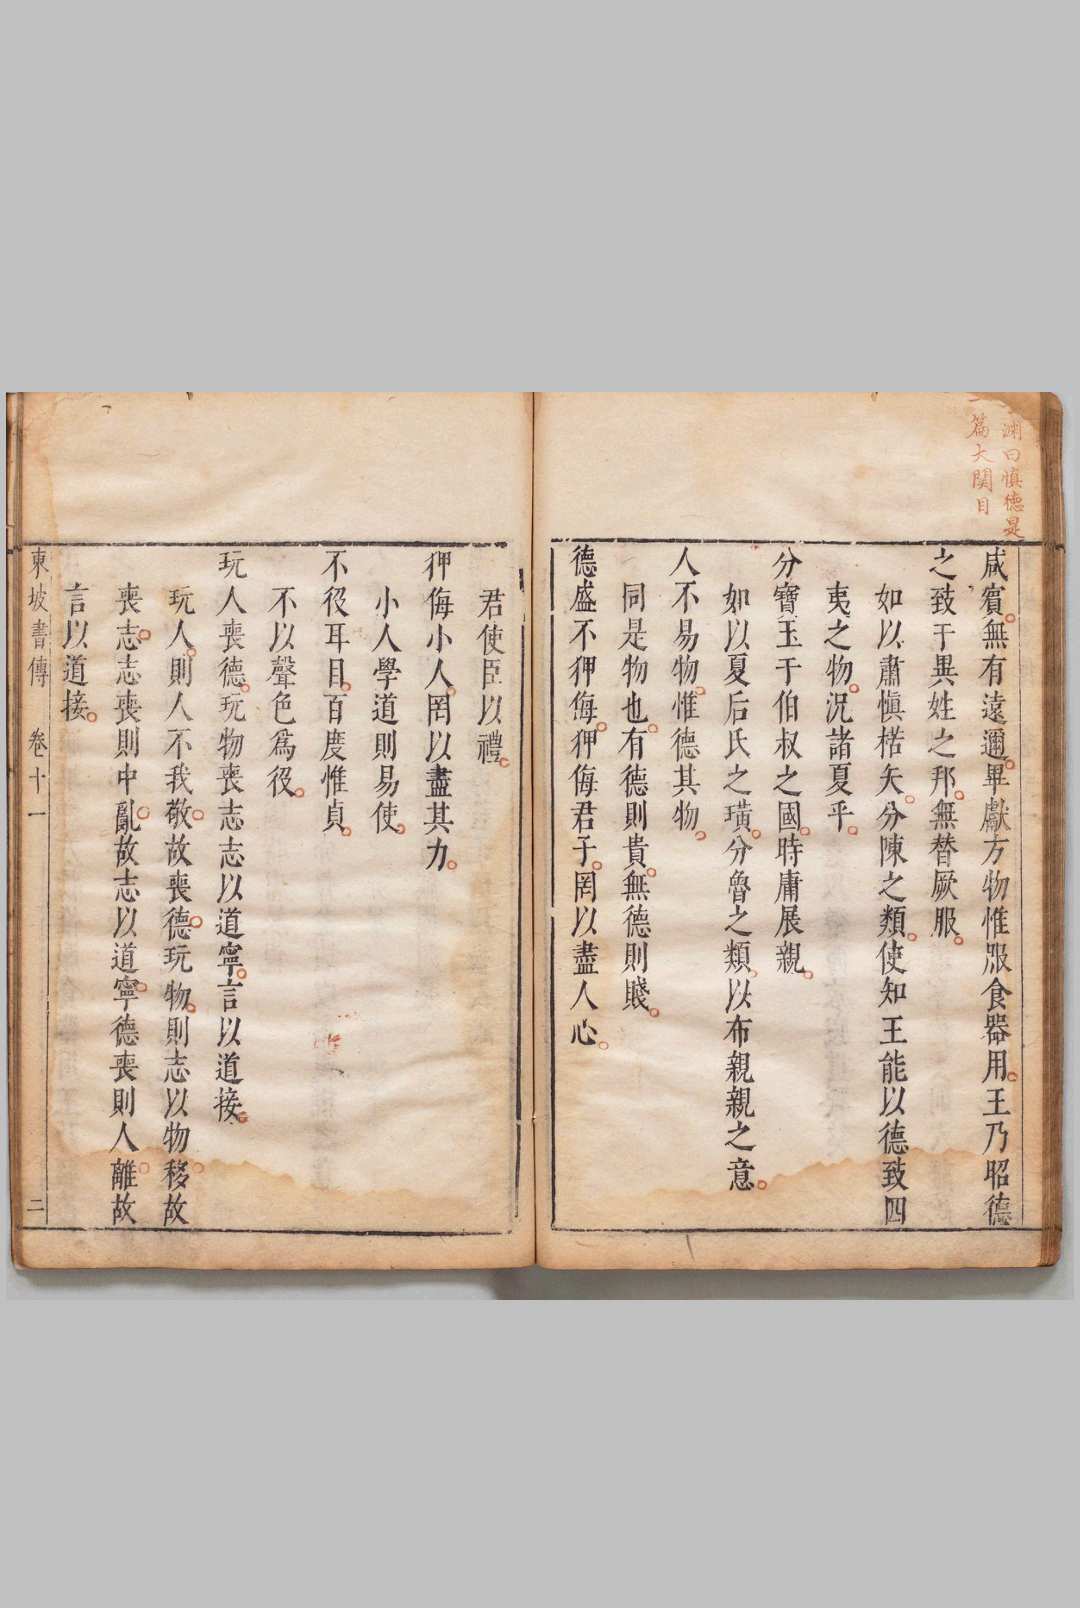 淵曰慎德是
一篇大関目
咸賓無有遠邇畢獻方物惟服食器用王乃昭德
之致于異姓之邦無替厥服
如以肅慎楛矢分陳之類使知王能以德致四
夷之物況諸夏乎
分寶玉于伯叔之國時庸展親
如以夏后氏之璜分魯之類以布親親之意
人不易物惟德其物
同是物也有德則貴無德則賤
德盛不狎侮狎侮君子罔以盡人心
君使臣以禮
狎侮小人罔以盡其力
小人學道則易使
不役耳目百度惟貞
不以聲色爲役
玩人喪德玩物喪志志以道寧言以道接
玩人則人不我敬故喪德玩物則志以物移故
喪志志喪則中亂故志以道寧德喪則人離故
言以道接
東坡書傳 卷十一 二